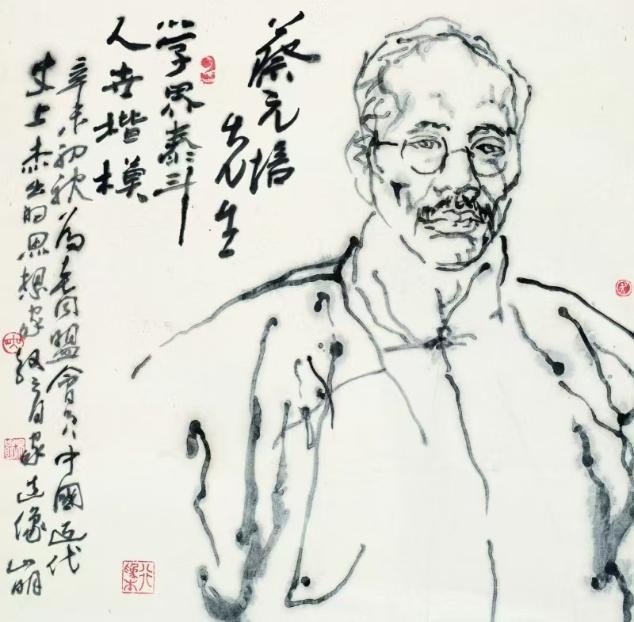 蔡元培
先生
学界泰斗
人世楷模
辛未初秋為老同盟會員中國近代
史上杰出的思想家教育家造像 山明